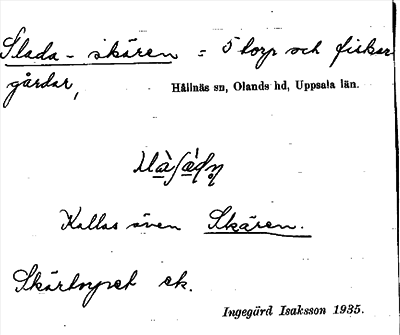 Slada-skären = 5 torp och fiskar
gårdar,
Hållnäs sn, Olands hd, Uppsala län.
Kallas även Skären.
Skärtorpet ek.
Ingegärd Isaksson 1935.